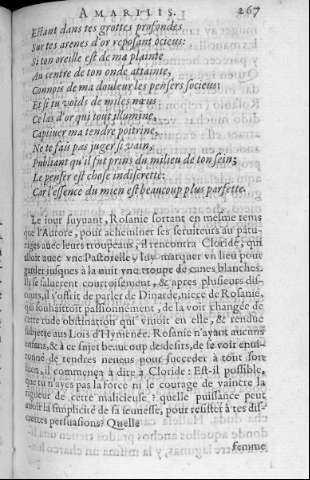 AMARILIS. 267
Estant dans tes grottes profondes
Sur tes arenes d'or reposant ocieus:
Si ton oreille est de ma plainte
Au centre de ton onde attainte,
Connois de ma douleur les pensers socieus:
Et si tu voids de miles nœus
Ce las d'or qui tout illumine,
Captiuer ma tendre poitrine,
Ne te fais pas juger si vain,
Publiant qu'il fut prins du milieu de ton sein;
Le penser est chose indiscrette:
Car l'essence du mien est beaucoup plus parfette.
Le iour suyuant, Rosanie sortant en mesme tems
que l'Aurore, pour acheminer ses seruiteurs au pátu-
rages auec leurs troupeaus, il rencontra Cloride, qui
alloit auec vne Pastorelle y luy marquer vn lieu pour
guider jusques à la nuit vne troupe de canes blanches.
Ils se saluerent courtoisement, & apres plusieurs dis-
cours, il s'offrit de parler de Dinarde, niece de Rosanie,
qui souhaittoit passionnément, de la voir changée de
cette rude obstination qui viuoit en elle, & rendue
subjette aus Lois d'Hymenée. Rosanie n'ayant aucuns
enfans, & à ce sujet beaucoup de desirs, de se voir enui-
ronné de tendres neueus pour succeder à tout son
bien, il commença à dire à Cloride: Est-il possible,
que tu n'ayes pas la force ni le courage de vaincre la
rigueur de cette malicieuse? quelle puissance peut
auoir la simplicité de sa jeunesse, pour resister à tes dis-
crettes persuasions? Quelle
femme